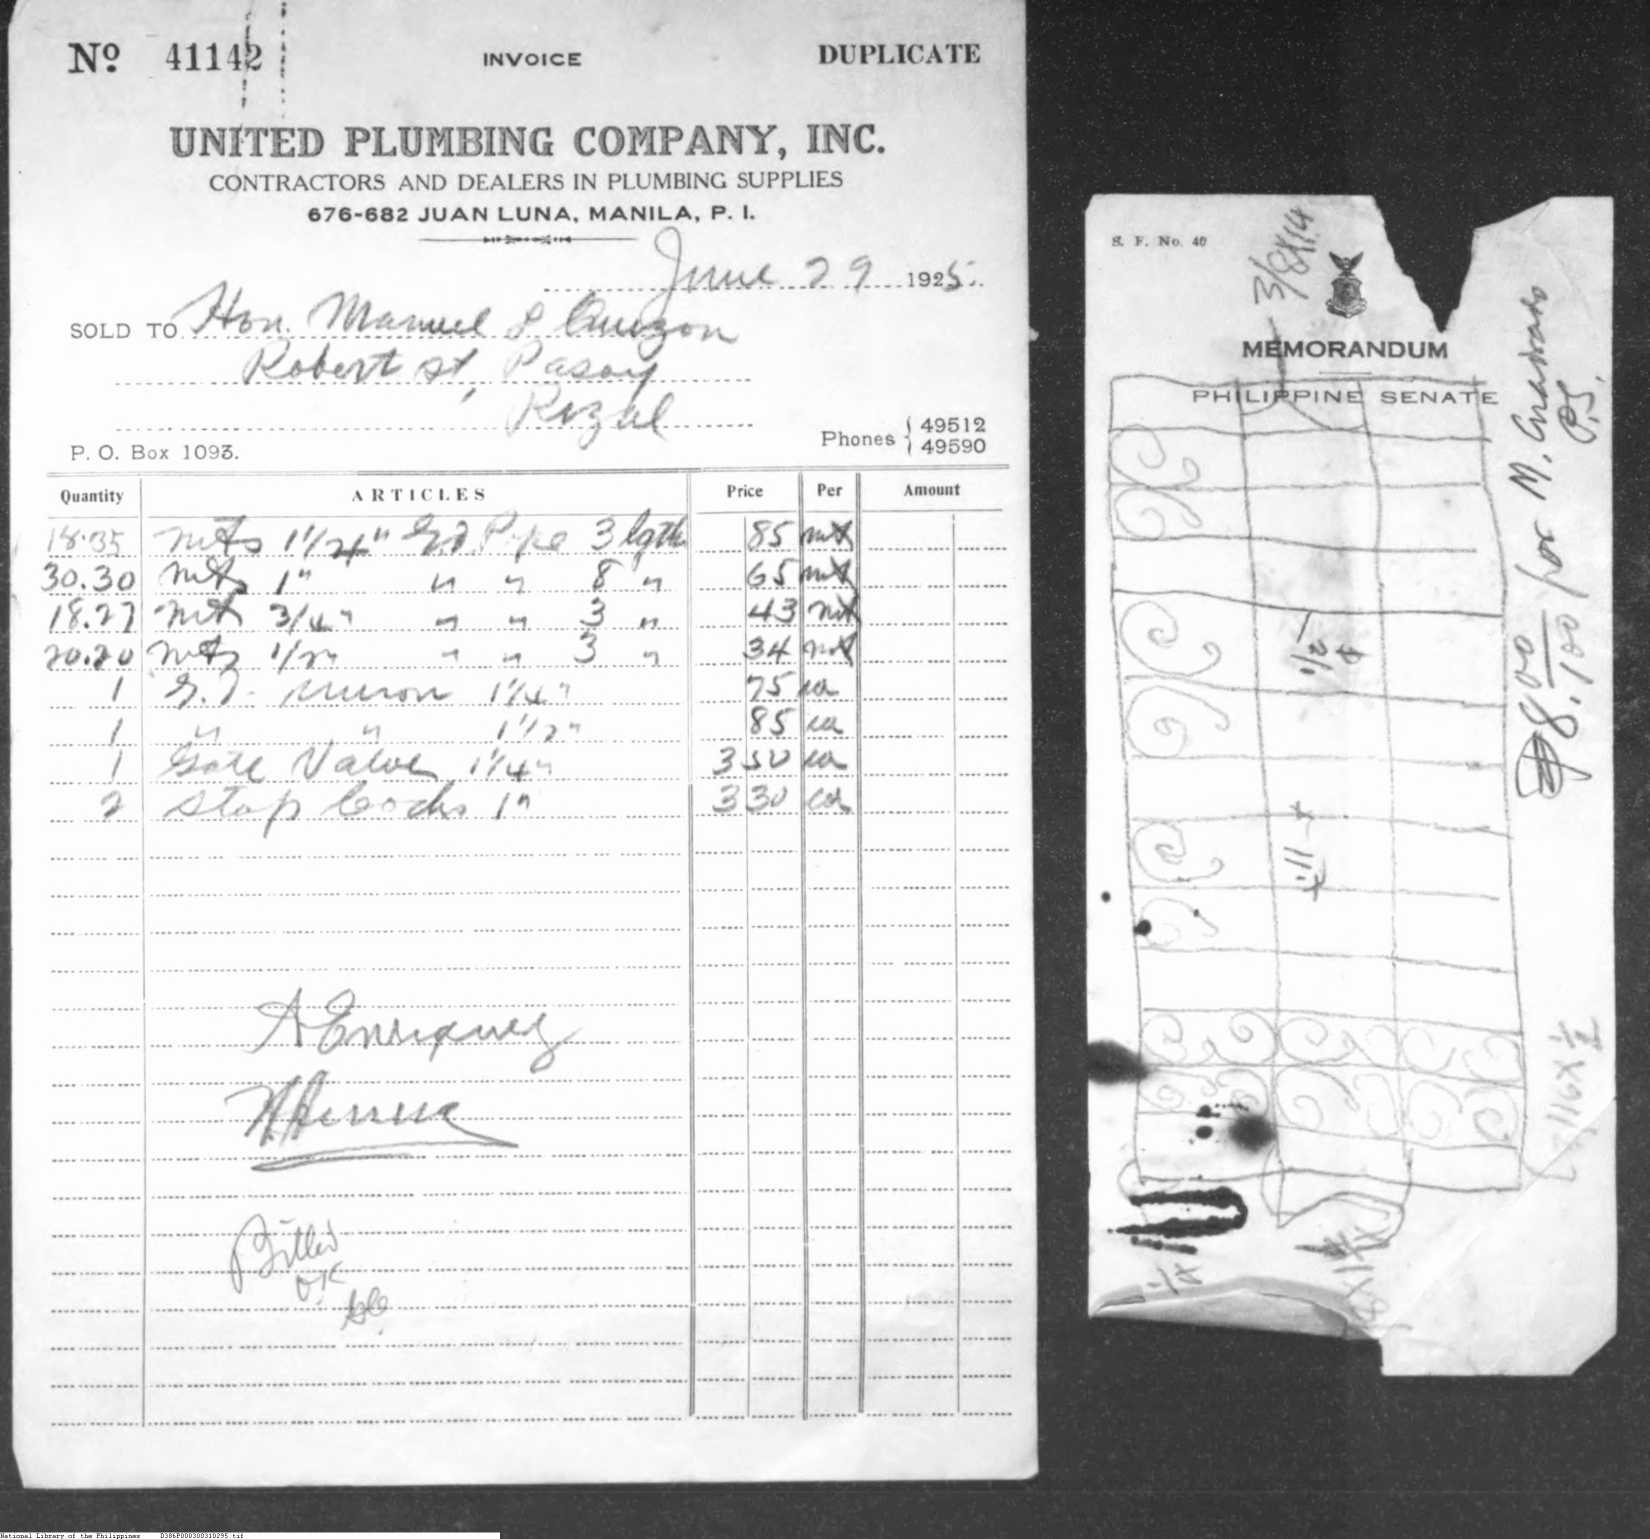 Nº 41142 INVOICE DUPLICATE
UNITED PLUMBING COMPANY, INC.
CONTRACTORS AND DEALERS IN PLUMBING SUPPLIES
676-682 JUAN LUNA, MANILA, P. I.
June 29 1925.
SOLD TO Hon. Manuel L Quezon
Robert st, Pasay
Rizal
P. O. Box 1093. Phones { 49512
49590
Quantity ARTICLES Price Per Amount
18.35 mts 1 1/4" G.I. Pipe 3 lgth 85 mt
30.30 mts 1" " " 8 " 65 mt
18.27 mts 3/4" " " 3 " 43 mt
20.20 mts 1/2" " " 3 " 34 mt
1 G.I. union 1 1/4" 75 ea
1 " " 1 1/2" 85 ea
1 Gate Valve 1 1/4" 3 50 ea
2 Stop Cocks 1" 3 30 ea
A Enriquez
Billed
OK
S. F. No. 40
3/8X14
MEMORANDUM
PHILIPPINE SENATE
₱8.00/100 for M.
P.S.
1/2
11
3/16 X 1/2
National Library of the Philippines D386P000300310295.tif